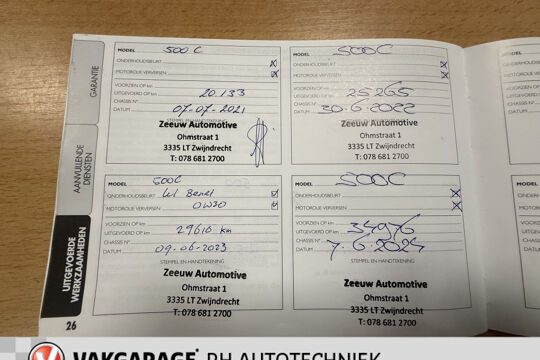 GARANTIE
AANVULLENDE DIENSTEN
UITGEVOERDE WERKZAAMHEDEN
MODEL 500 C
ONDERHOUDSBEURT
MOTOROLIE VERVERSEN
VOORZIEN OP km
UITGEVOERD OP km 20.133
CHASSIS N°
DATUM 07-07-2021
STEMPEL EN HANDTEKENING
Zeeuw Automotive
Ohmstraat 1
3335 LT Zwijndrecht
T: 078 681 2700
MODEL 500C
ONDERHOUDSBEURT
MOTOROLIE VERVERSEN
VOORZIEN OP km
UITGEVOERD OP km 25265
CHASSIS N°
DATUM 30-6-2022
Zeeuw Automotive
Ohmstraat 1
3335 LT Zwijndrecht
T: 078 681 2700
MODEL 500C
ONDERHOUDSBEURT
MOTOROLIE VERVERSEN 0W30
VOORZIEN OP km
UITGEVOERD OP km 29616 km
CHASSIS N°
DATUM 09-06-2023
STEMPEL EN HANDTEKENING
Zeeuw Automotive
Ohmstraat 1
3335 LT Zwijndrecht
T: 078 681 2700
MODEL 500C
ONDERHOUDSBEURT
MOTOROLIE VERVERSEN
VOORZIEN OP km
UITGEVOERD OP km 34976
CHASSIS N°
DATUM 7.6.2024
STEMPEL EN HANDTEKENING
Zeeuw Automotive
Ohmstraat 1
3335 LT Zwijndrecht
T: 078 681 2700
26
VAKGARAGE PH AUTOTECHNIEK